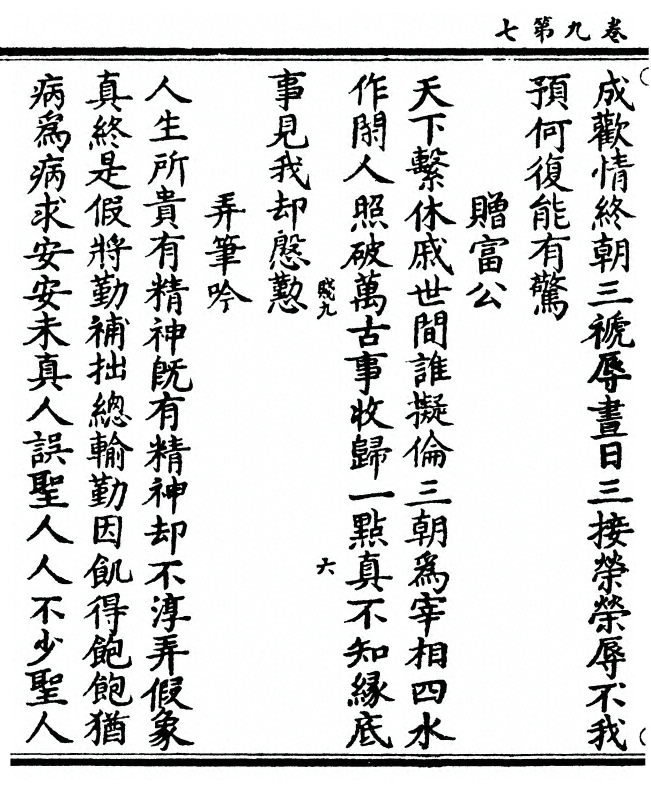 卷九第七
成歡情終朝三褫辱晝日三接榮榮辱不我
預何復能有驚
贈富公
天下繫休戚世間誰擬倫三朝爲宰相四水
作閒人照破萬古事收歸一點真不知緣底
賤九
六
事見我却慇懃
弄筆吟
人生所貴有精神既有精神却不淳弄假象
真終是假將勤補拙總輸勤因飢得飽飽猶
病爲病求安安未真人誤聖人人不少聖人